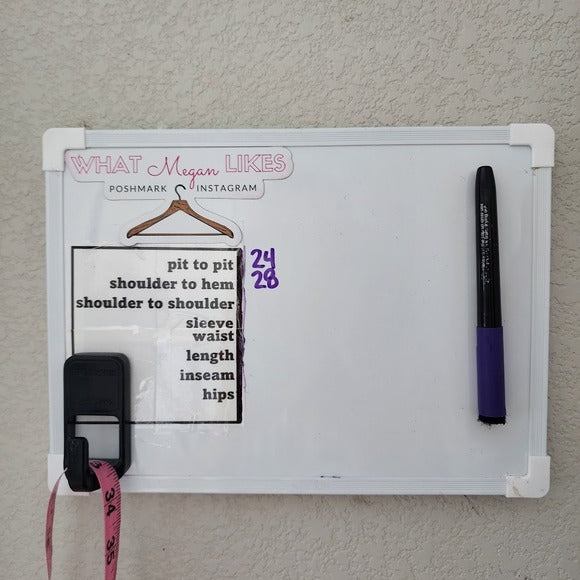 WHAT Megan LIKES
POSHMARK INSTAGRAM
pit to pit 24
shoulder to hem 28
shoulder to shoulder
sleeve
waist
length
inseam
hips
34
35